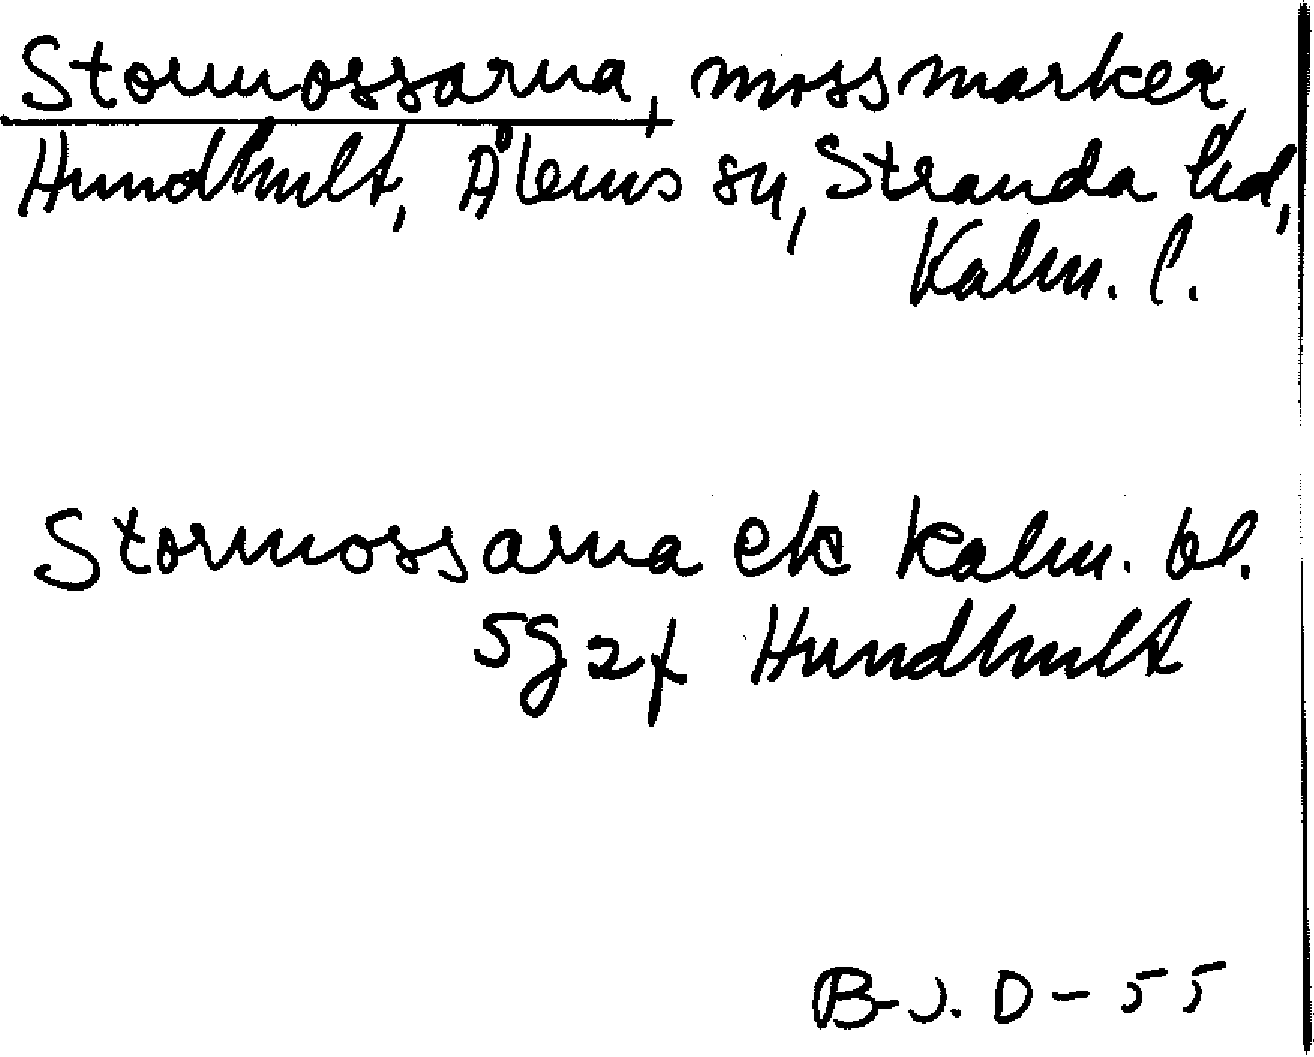 Stormossarna, mossmarker,
Hundhult, Ålems sn, Stranda hd,
Kalm. l.
Stormossarna ek Kalm. bl.
5g2f Hundhult
B-J. D-55